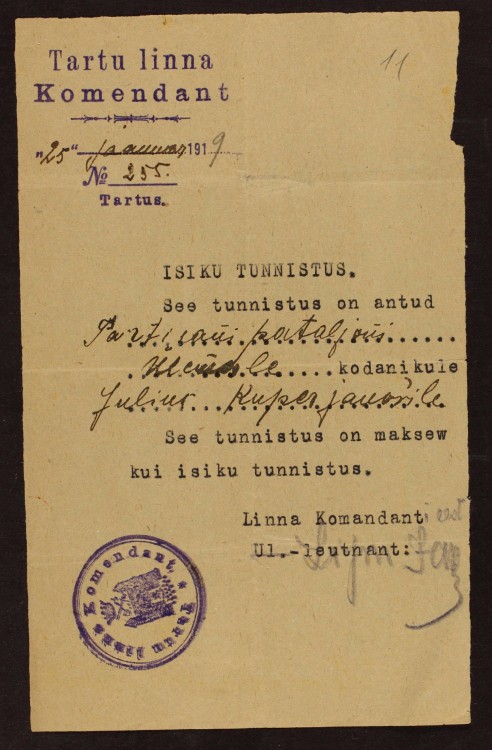 Tartu linna
Komendant
11
"25" jaanuar 1919
№ 255.
Tartus.
ISIKU TUNNISTUS.
See tunnistus on antud
Partisani pataljoni
..... kodanikule
Julius Kuperjanovile
See tunnistus on maksew
kui isiku tunnistus.
Linna Komandant i eest
Ul.-leutnant:
Tartu linna Komendant.